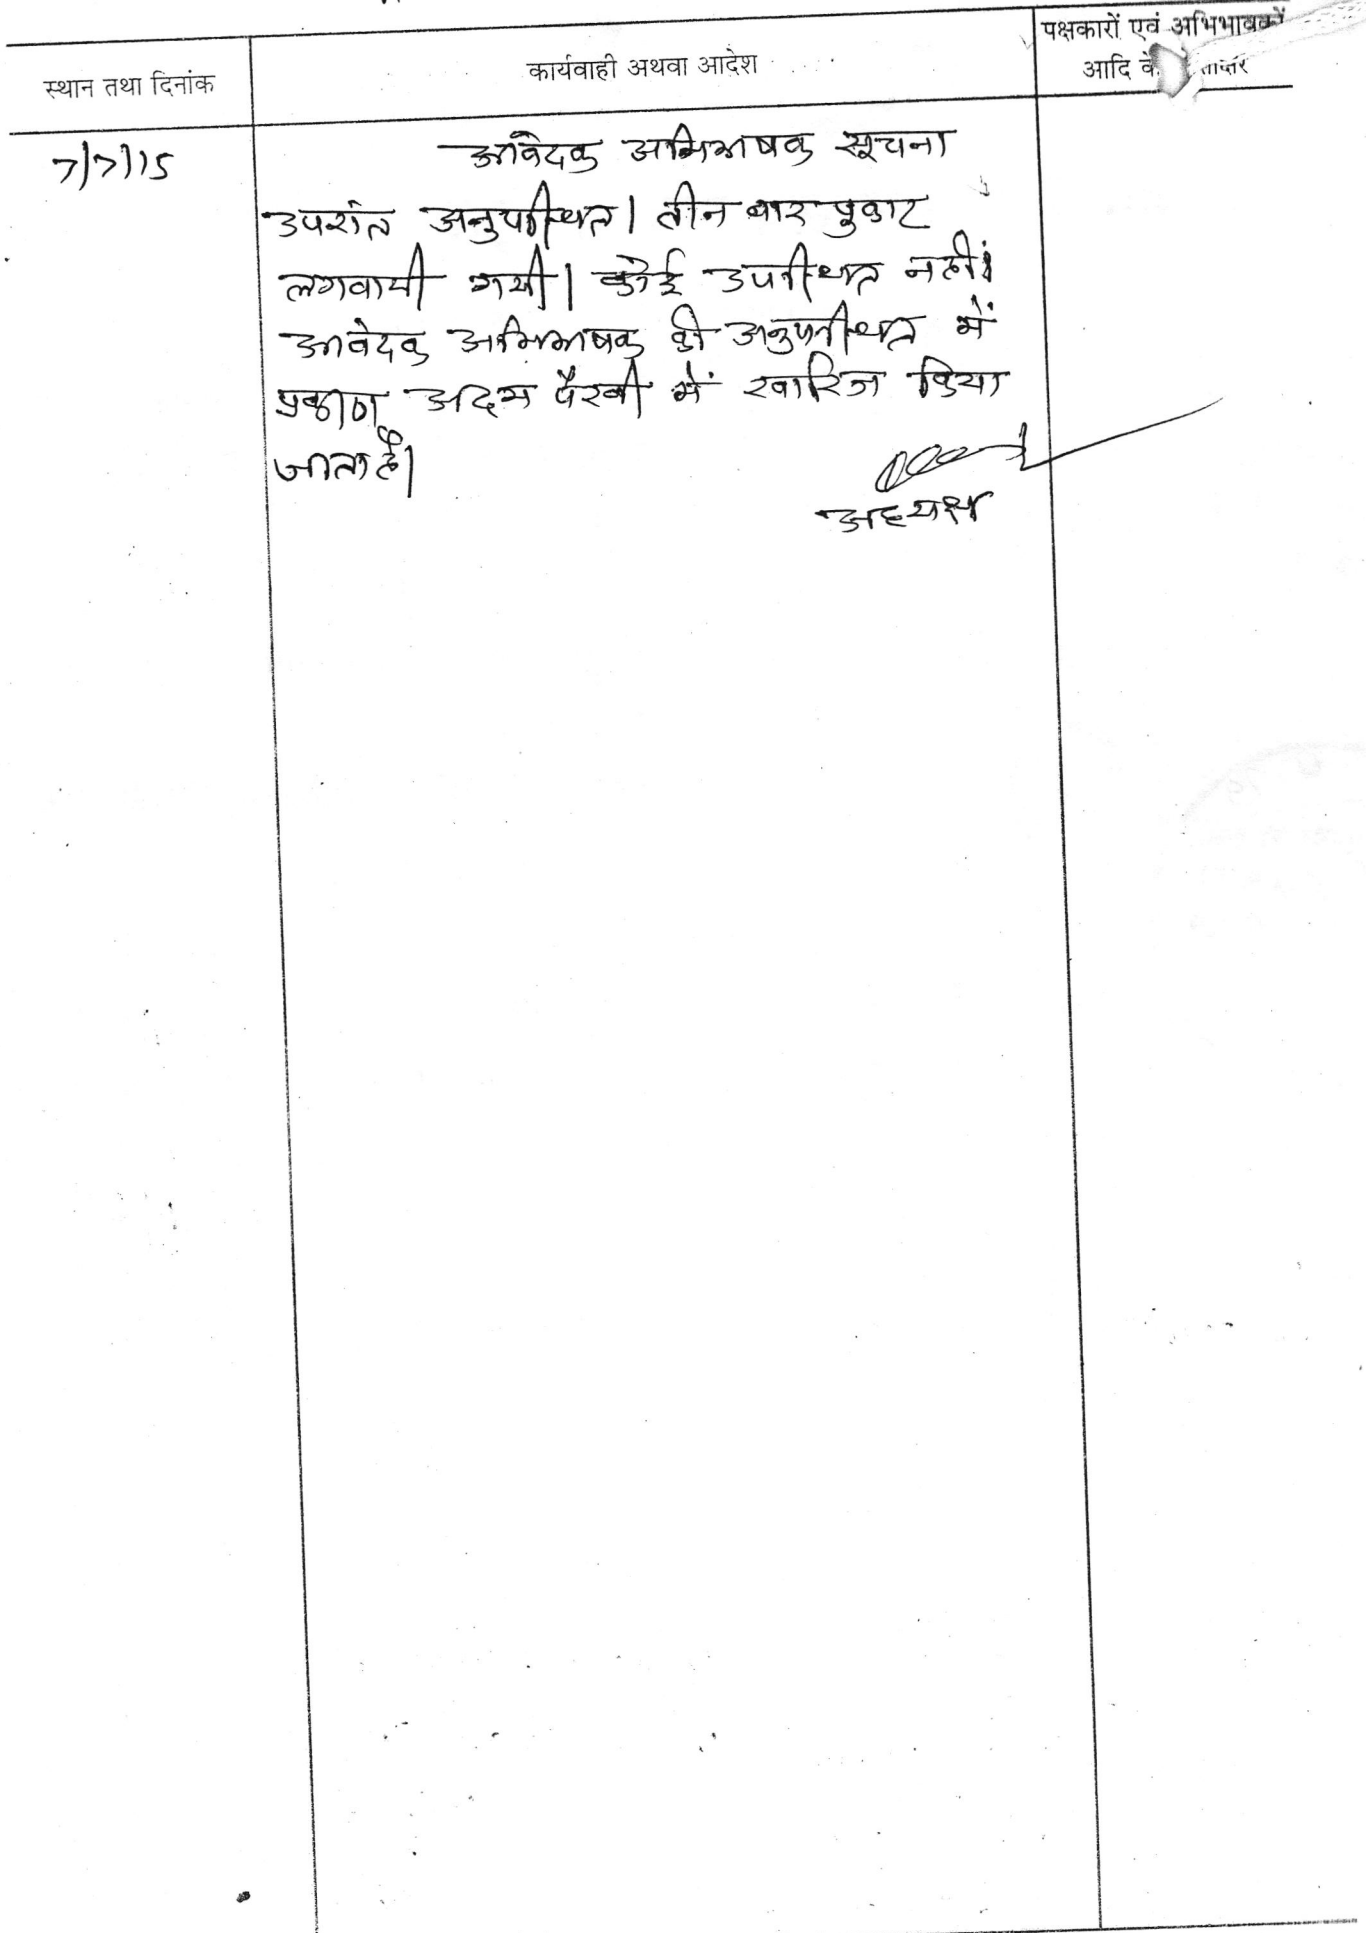 पक्षकारों एवं अभिभावकों
स्थान तथा दिनांक
कार्यवाही अथवा आदेश
आदि के
7/7/15
आवेदक अभिभाषक सूचना
उपरांत अनुपस्थित। तीन बार पुकार
लगवायी गयी। कोई उपस्थित नहीं।
आवेदक अभिभाषक की अनुपस्थित में
प्रकरण अदम पैरवी में खारिज किया
जाता है।
अध्यक्ष